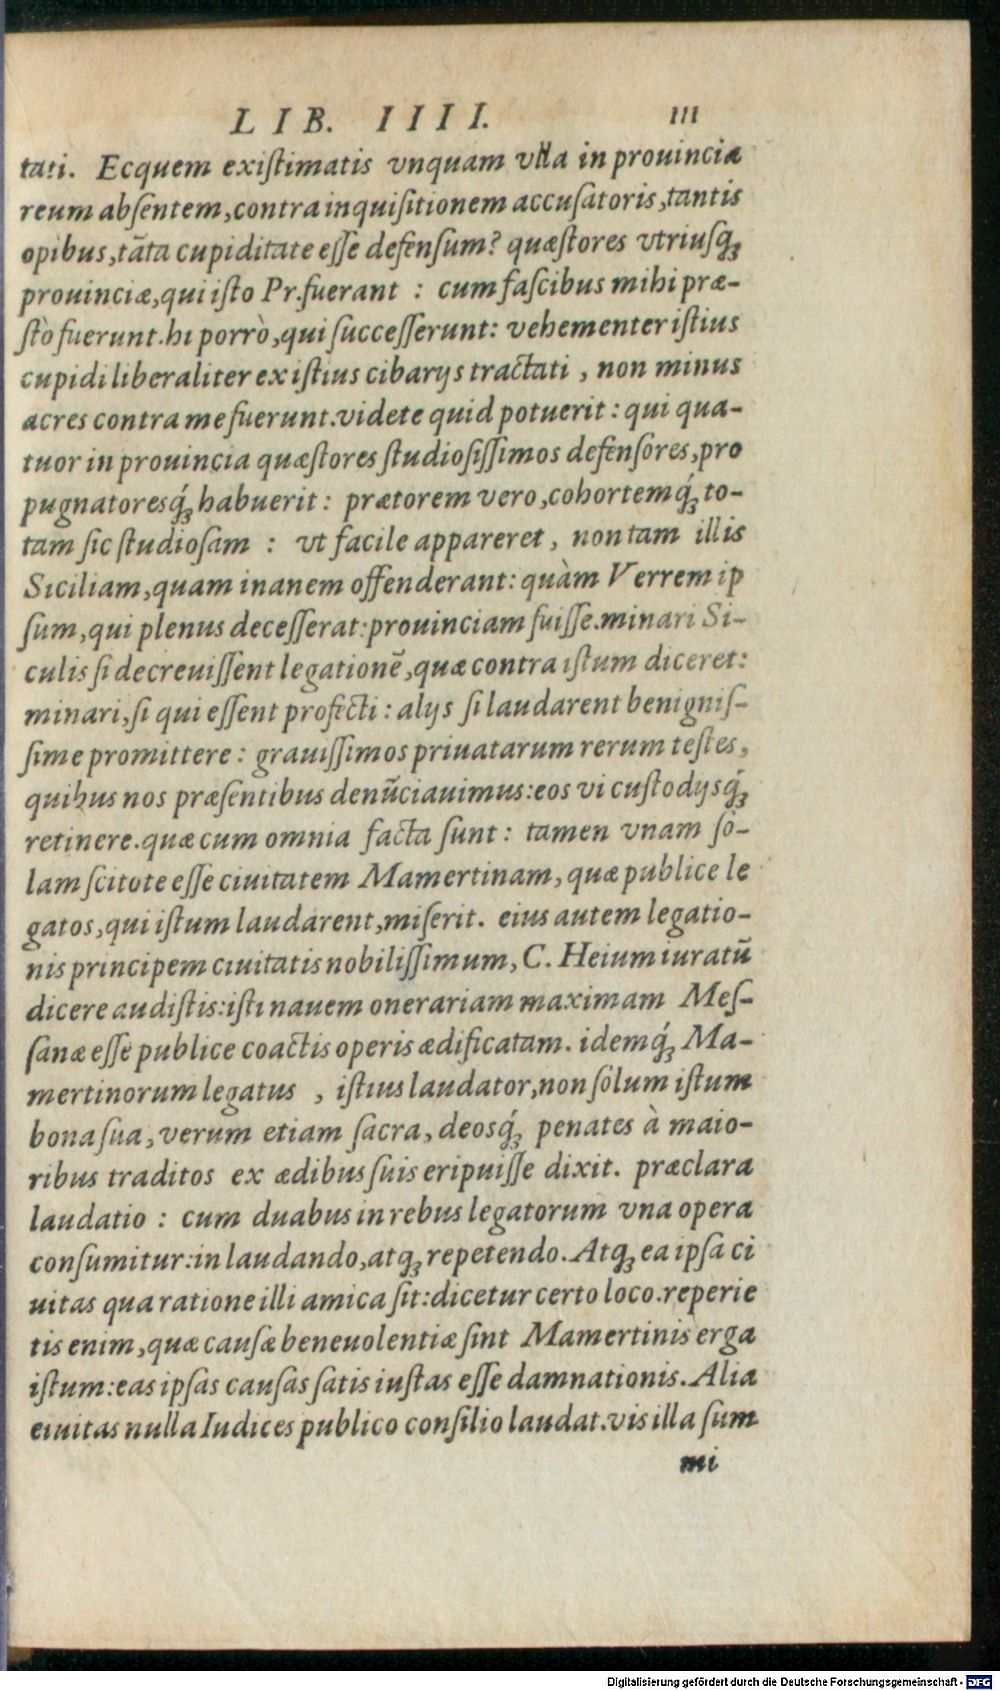 LIB. IIII. III
tati. Ecquem exiſtimatis vnquam vlla in prouincia
reum abſentem, contra inquiſitionem accuſatoris, tantis
opibus, tāta cupiditate eſſe defenſum? quæſtores vtriuſq́ꝫ
prouinciæ, qui iſto Pr. fuerant : cum faſcibus mihi præ-
ſtò fuerunt. hi porrò, qui ſucceſſerunt: vehementer iſtius
cupidi liberaliter ex iſtius cibarijs tractati , non minus
acres contra me fuerunt. videte quid potuerit : qui qua-
tuor in prouincia quæſtores ſtudioſiſſimos defenſores, pro
pugnatoresq́ꝫ habuerit : prætorem vero, cohortemq́ꝫ to-
tam ſic ſtudioſam : vt facile appareret, non tam illis
Siciliam, quam inanem offenderant: quàm Verrem ip
ſum, qui plenus deceſſerat: prouinciam fuiſſe. minari Si-
culis ſi decreuiſſent legationē, quæ contra iſtum diceret:
minari, ſi qui eſſent profecti : alijs ſi laudarent benigniſ-
ſime promittere : grauiſſimos priuatarum rerum teſtes,
quibus nos præſentibus denūciauimus: eos vi cuſtodijsq́ꝫ
retinere. quæ cum omnia facta ſunt : tamen vnam ſo-
lam ſcitote eſſe ciuitatem Mamertinam, quæ publice le
gatos, qui iſtum laudarent, miſerit. eius autem legatio-
nis principem ciuitatis nobiliſſimum, C. Heium iuratū
dicere audiſtis: iſti nauem onerariam maximam Meſ-
ſanæ eſſe publice coactis operis ædificatam. idemq́ꝫ Ma-
mertinorum legatus , iſtius laudator, non ſolum iſtum
bona ſua, verum etiam ſacra, deosq́ꝫ penates à maio-
ribus traditos ex ædibus ſuis eripuiſſe dixit. præclara
laudatio : cum duabus in rebus legatorum vna opera
conſumitur: in laudando, atqꝫ repetendo. Atqꝫ ea ipſa ci
uitas qua ratione illi amica ſit: dicetur certo loco. reperie
tis enim, quæ cauſæ beneuolentiæ ſint Mamertinis erga
iſtum: eas ipſas cauſas ſatis iuſtas eſſe damnationis. Alia
ciuitas nulla Iudices publico conſilio laudat. vis illa ſum
mi
Digitalisierung gefördert durch die Deutsche Forschungsgemeinschaft - DFG